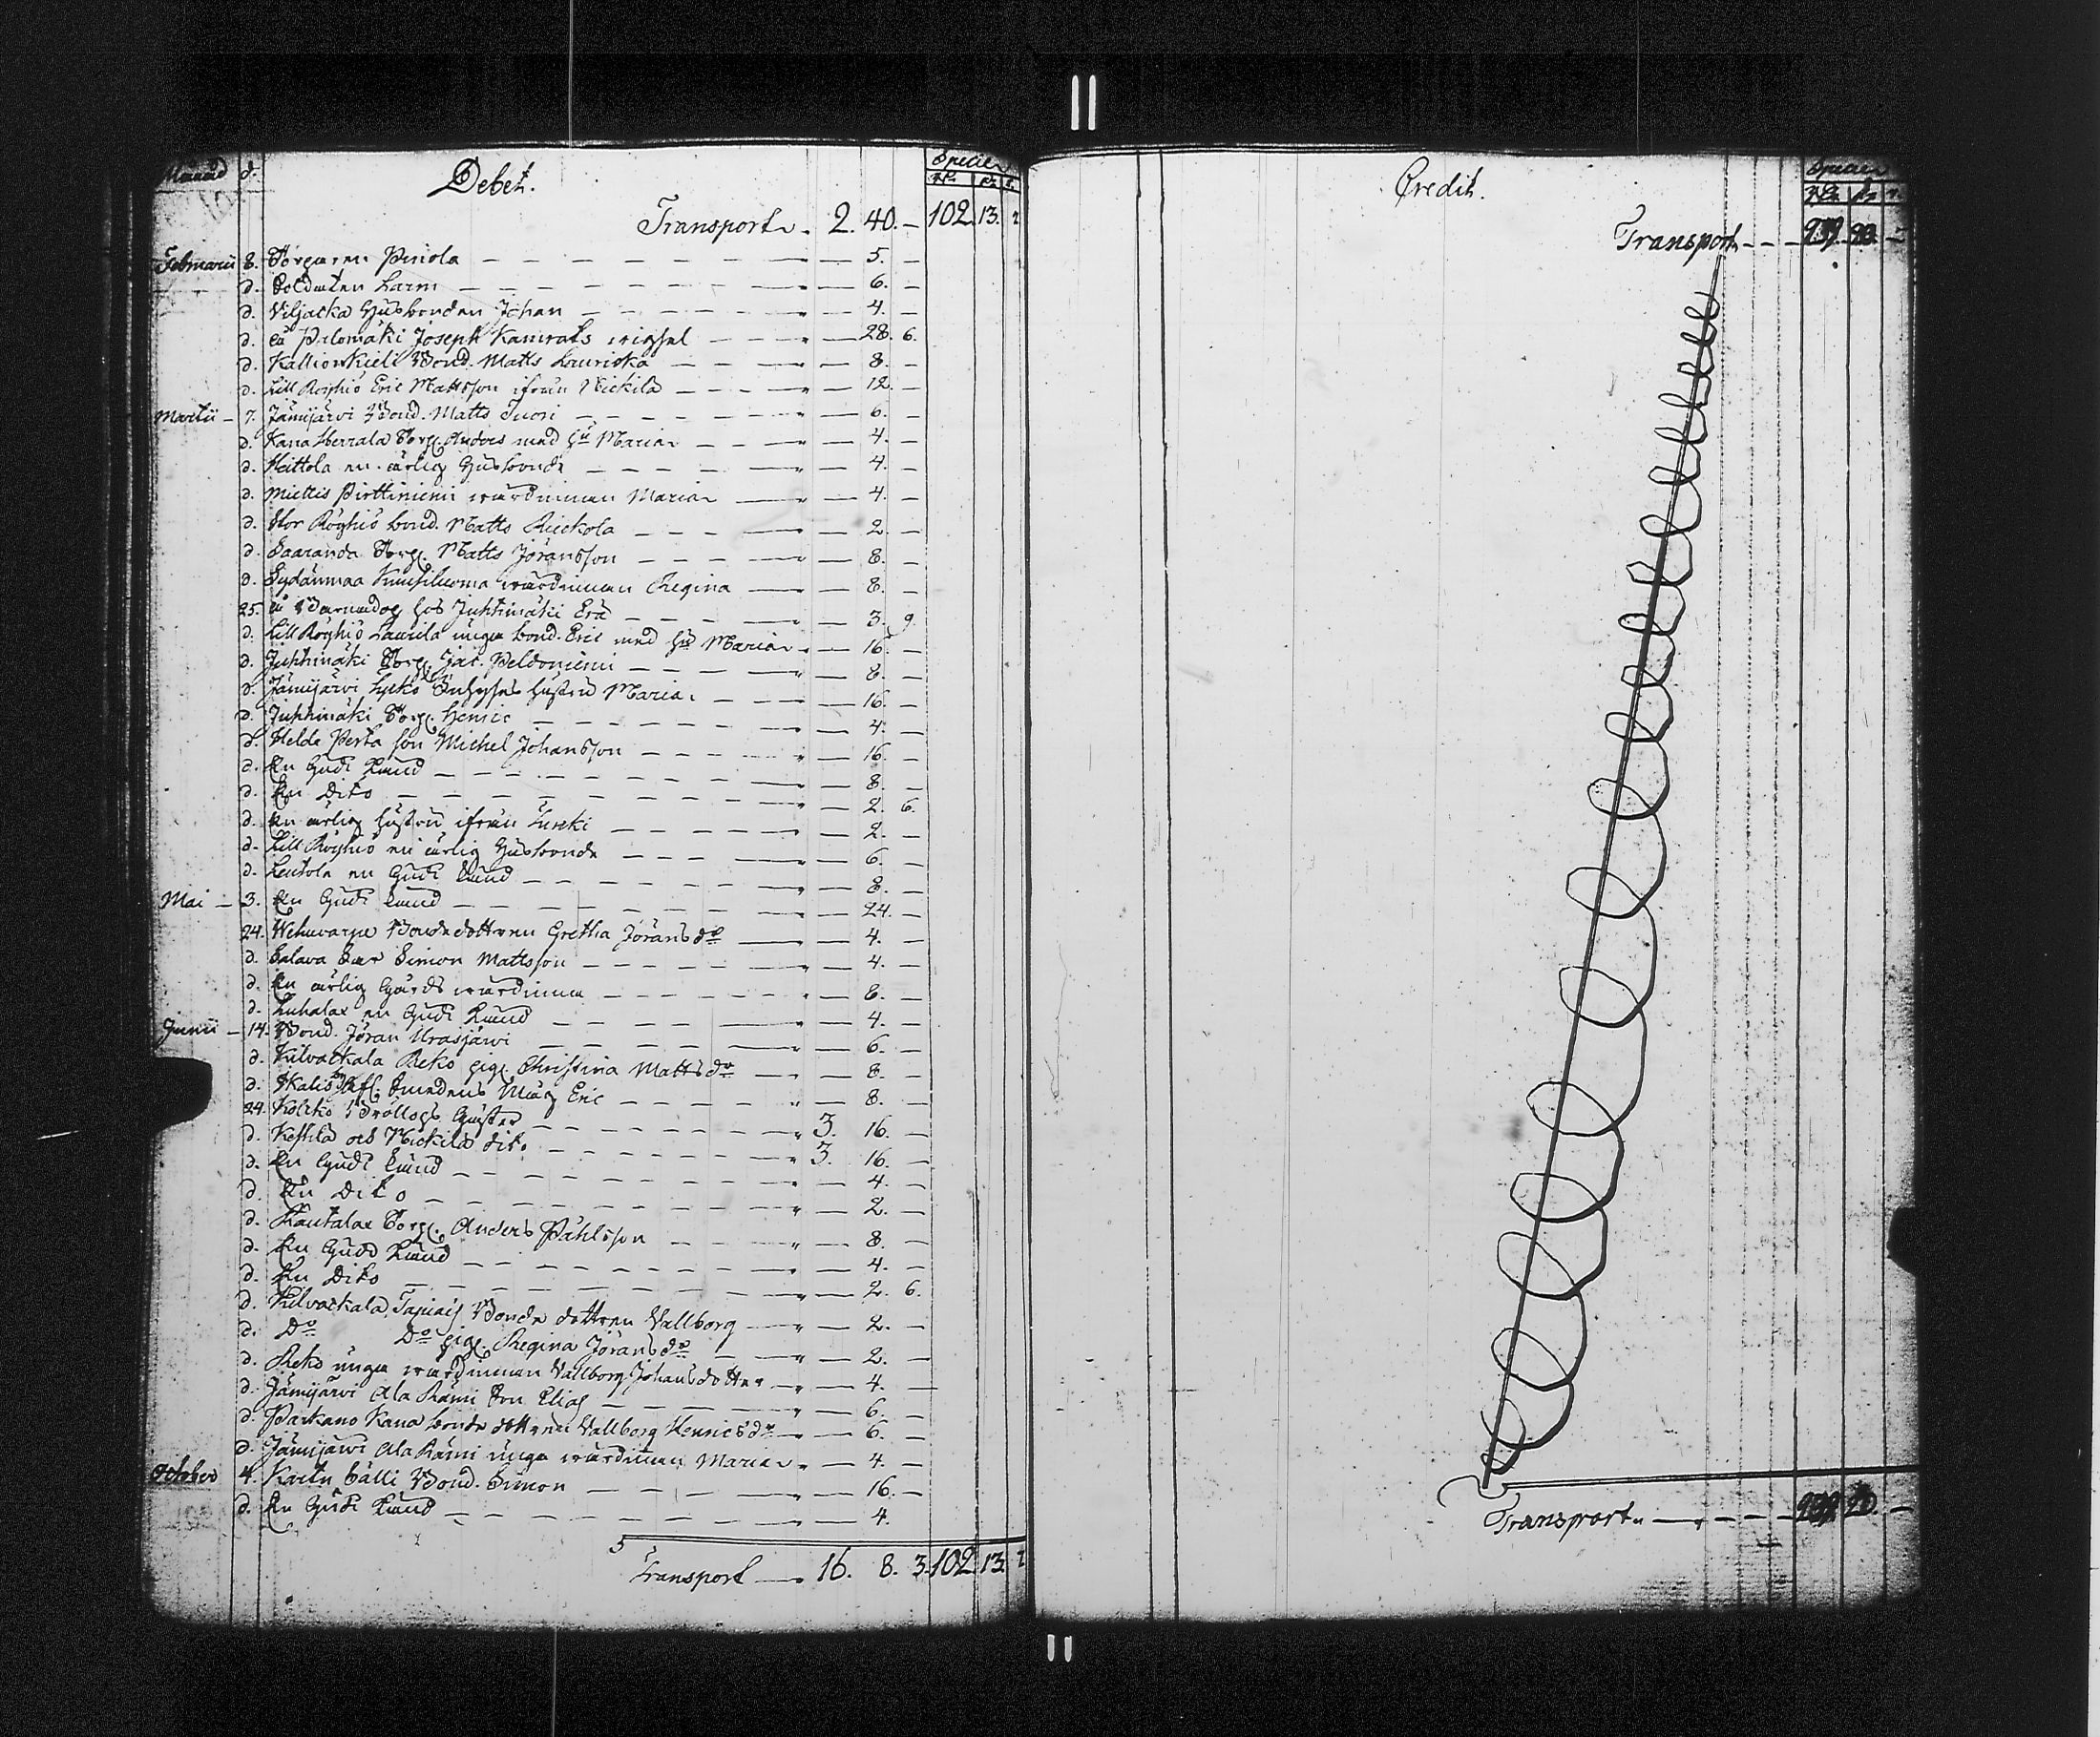 Månad d. Debet. Specier
Transport 2. 40. — 102. 13.
Februarii 8. Torparen Peniola — 5. —
d. Soldaten Larm — 6. —
d. Viljacka Husbonden Johan — 4. —
d. å Pilomäki Joseph Kamrats — 28. 6.
d. Kallionkieli Bond. Matts Lauricka — 8. —
d. Lill Röyhiö Eric Mattsson ifrån Nickilä — 12. —
Martii — 7. Jämijärvi Bond. Matts Tuori — 6. —
d. Kana Torp. Anders med Hu Maria — 4. —
d. Heittola en ärlig Husbonde — 4. —
d. Miettis Pirttiniemi wärdinnan Maria — 4. —
d. Stor Röyhiö bond. Matts — 2. —
d. Saaranda Torp. Matts Jöransson — 8. —
d. Sydänmaa wärdinnan Regina — 8. —
25. å Barnadop hos Juhtimäki Erä — 3. 9.
d. Lill Röyhiö Laurila unga bond. Eric med Hu Maria — 16. —
d. Juhtimäki Torp. Jac. Peldoniemi — 8. —
d. Jämijärvi Lycko Inhyses hustru Maria — 16. —
d. Juhtimäki Torp. Henric — 4. —
d. Perta son Michel Johansson — 16. —
d. En Guds Kund — 8. —
d. En Dito — 2. 6.
d. En ärlig hustru ifrån — 2. —
d. Lill Röyhiö en ärlig Husbonde — 6. —
d. Leutola en Guds Kund — 8. —
Mai — 3. En Guds Kund — 24. —
24. Wehuvarpe Bonde dottren Gretha Jörans dr — 4. —
d. Salava Simon Mattsson — 4. —
d. En ärlig Gårds wärdinna — 8. —
d. Luhalax en Guds Kund — 4. —
Junii — 14. Bond. Jöran Urasjärvi — 6. —
d. Kilvackala Reko pig. Christina Matts dr — 8. —
d. Skalis Smedens Måg Eric — 8. —
24. Kolcko Bröllops Gäster — 3. 16. —
d. Keskilä och Nickilä dito — 3. 16. —
d. En Guds Kund — 4. —
d. En Dito — 2. —
d. Kautalax Torp. Anders Påhlsson — 8. —
d. En Guds Kund — 4. —
d. En Dito — 2. 6.
d. Kilvackala Bonde dottren Vallborg — 2. —
d. Do Do pig. Regina Jörans dr — 2. —
d. Reko unga wärdinnan Vallborg Johans dotter — 4. —
d. Jämijärvi Ala Rämi Son Elias — 6. —
d. Parkano Kana bonde dottren Vallborg Henrics dr — 6. —
d. Jämijärvi Ala Rämi unga wärdinnan Maria — 4. —
October 4. Kartu Bond. Simon — 16. —
d. En Guds Kund — 4.
Transport — 16. 8. 3. 102. 13.
Credit. Specier
Transport
Transport